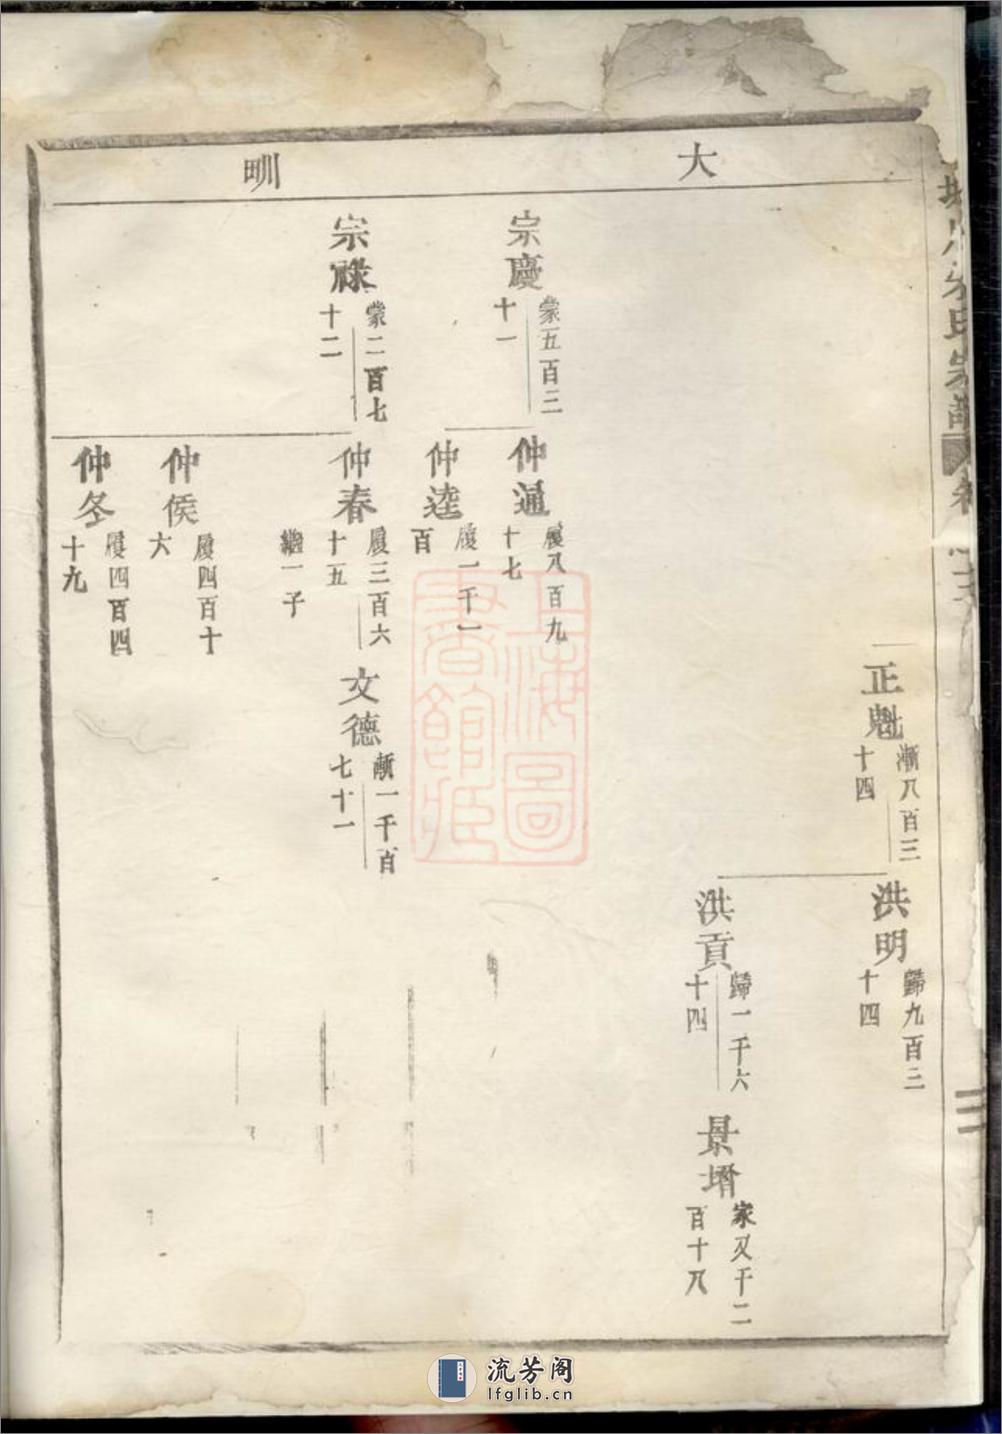 大
甽
正魁
漸八百三
十四
洪明
歸九百三
十四
洪貢
歸一千六
十四
景壻
家又千二
百十八
宗慶
蒙五百三
十一
仲通
履八百九
十七
仲逵
履一千一
百
宗祿
蒙二百七
十二
仲春
履三百六
十五
繼一子
文德
漸一千百
七十一
仲侯
履四百十
六
仲冬
履四百四
十九
上海圖
書館藏
流芳阁
lfglib.cn